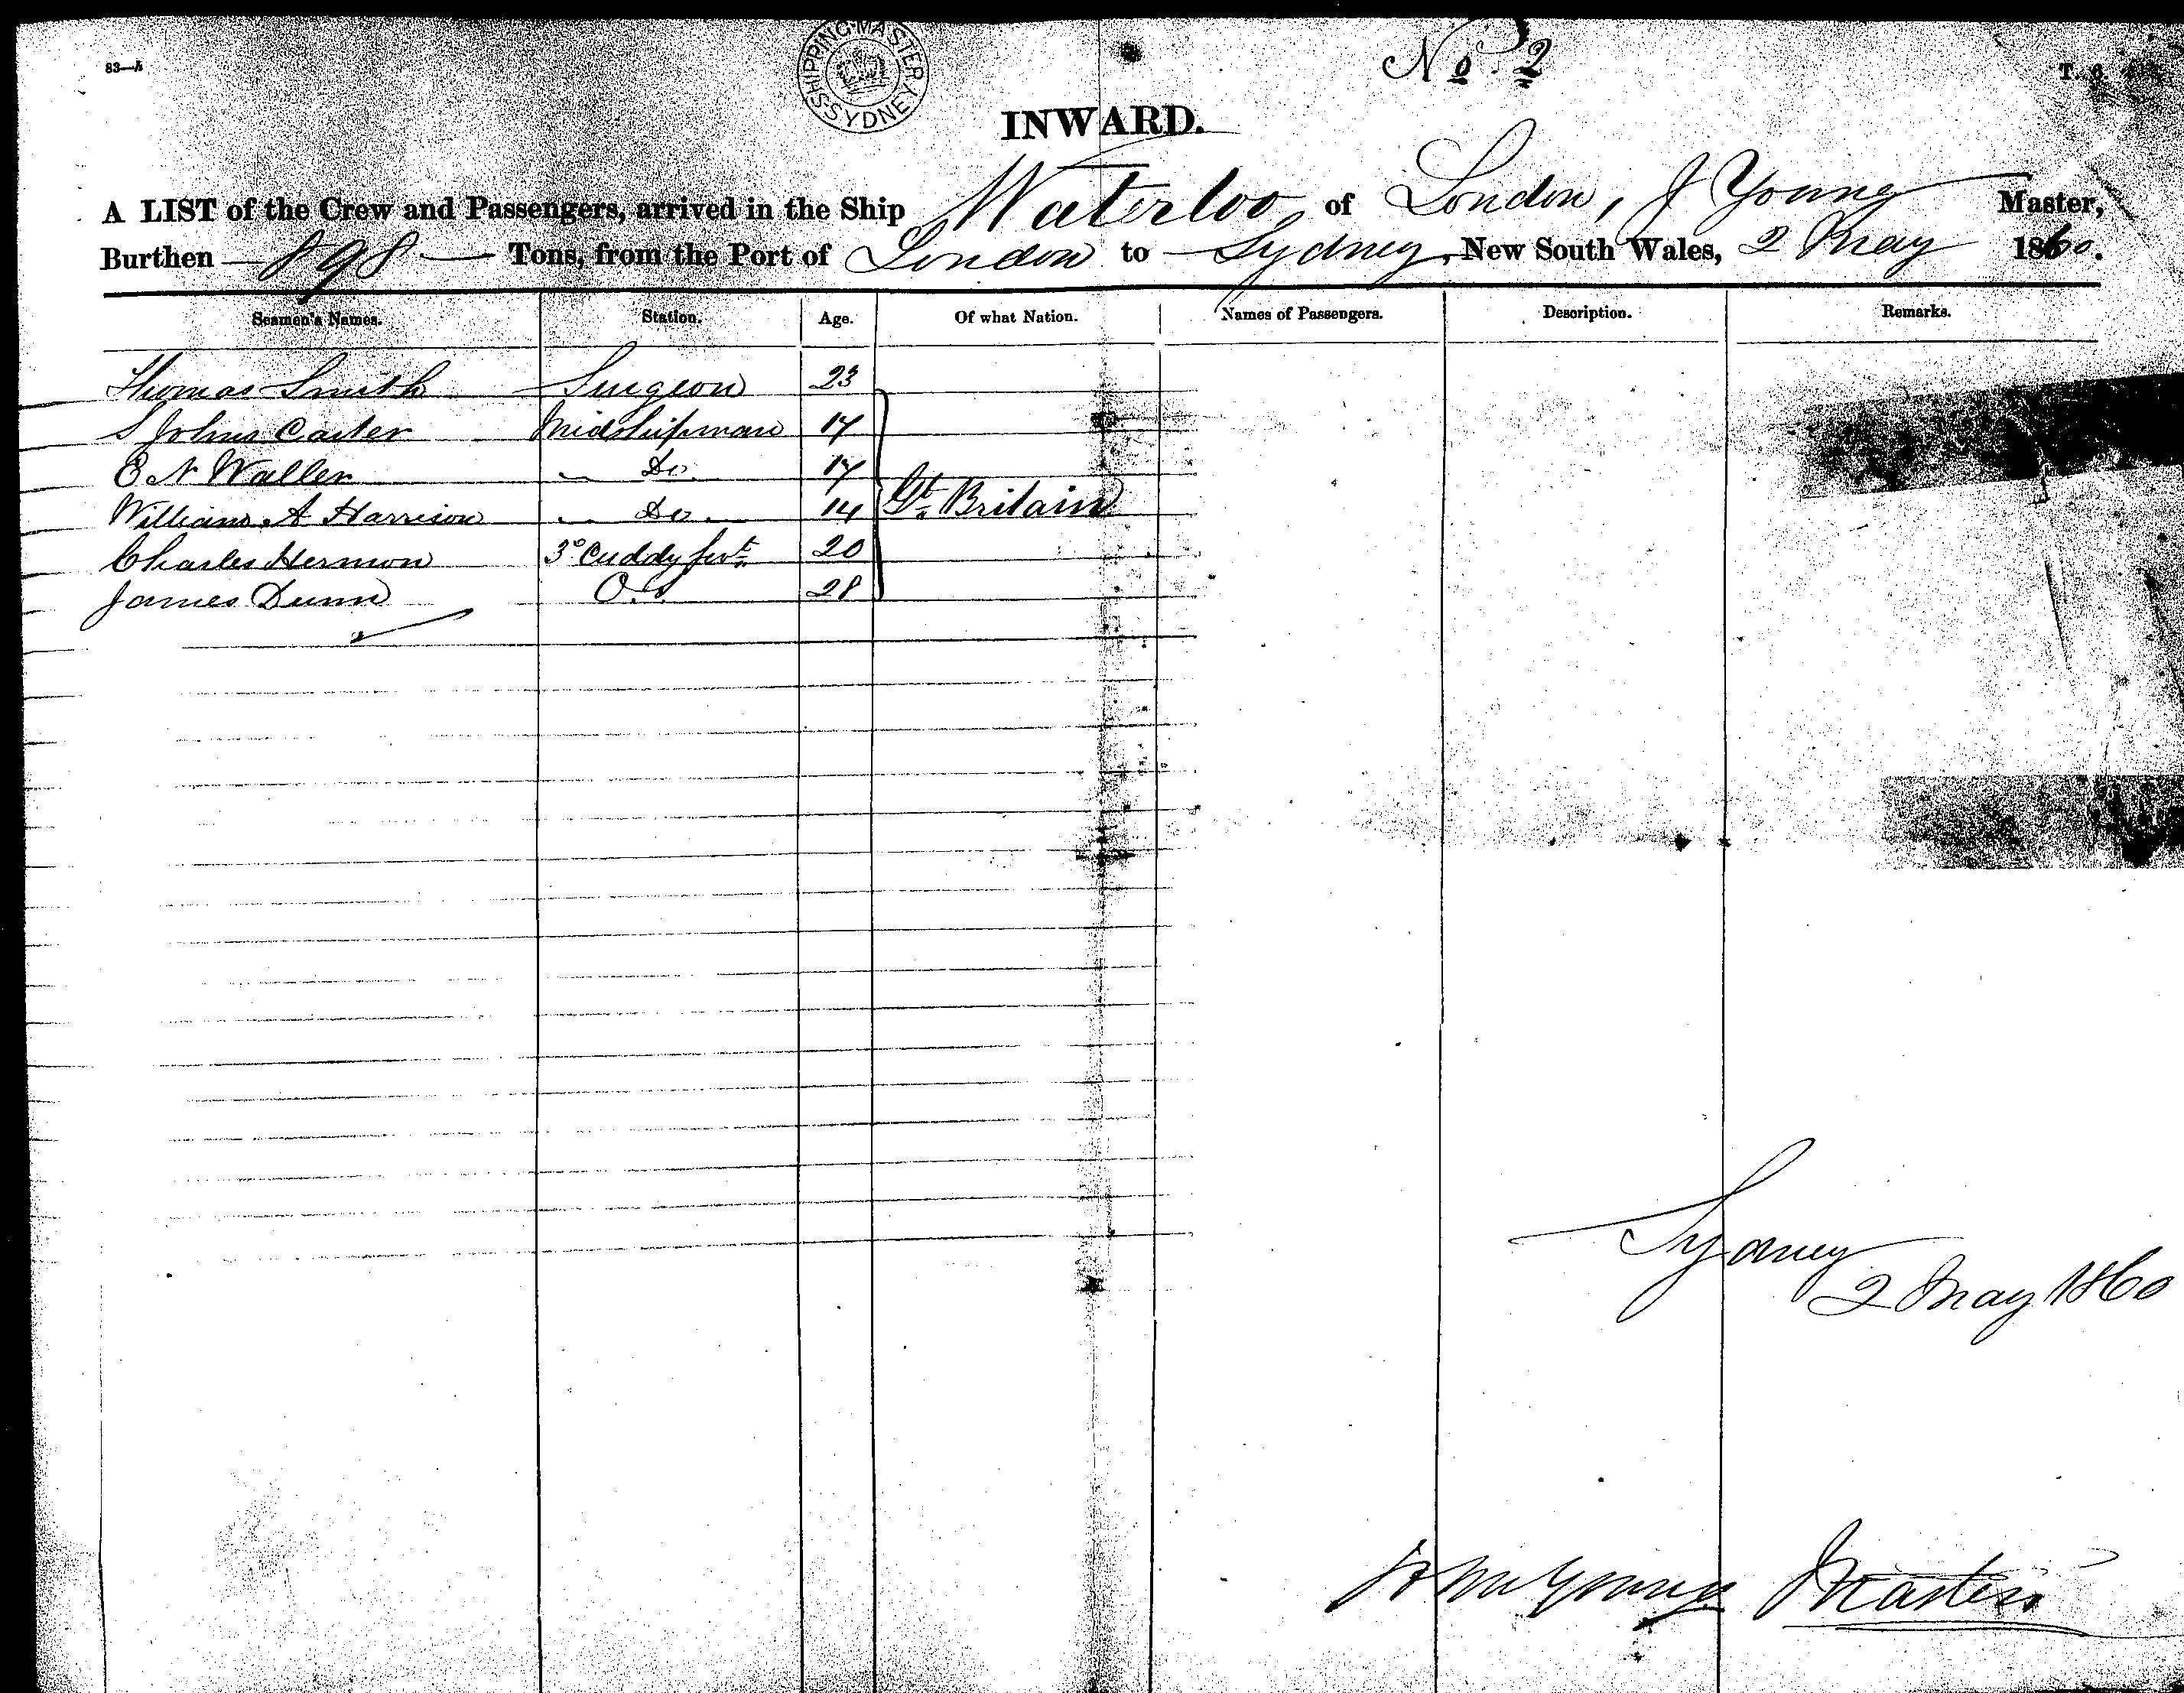 83—A
SHIPPING MASTER SYDNEY
No. 2
INWARD.
A LIST of the Crew and Passengers, arrived in the Ship Waterloo of London, J Young Master,
Burthen 898 Tons, from the Port of London to Sydney, New South Wales, 2 May 1860.
Seamen's Names. Station. Age. Of what Nation. Names of Passengers. Description. Remarks.
Thomas Smith Surgeon 23
S Johns Carter Midshipman 17
E N Waller Do. 17
William A Harrison Do. 14 Gt. Britain
Charles Hermon 3° Cuddy Servt. 20
James Dunn O.S. 28
Sydney
2 May 1860
Jn Wm Young Master